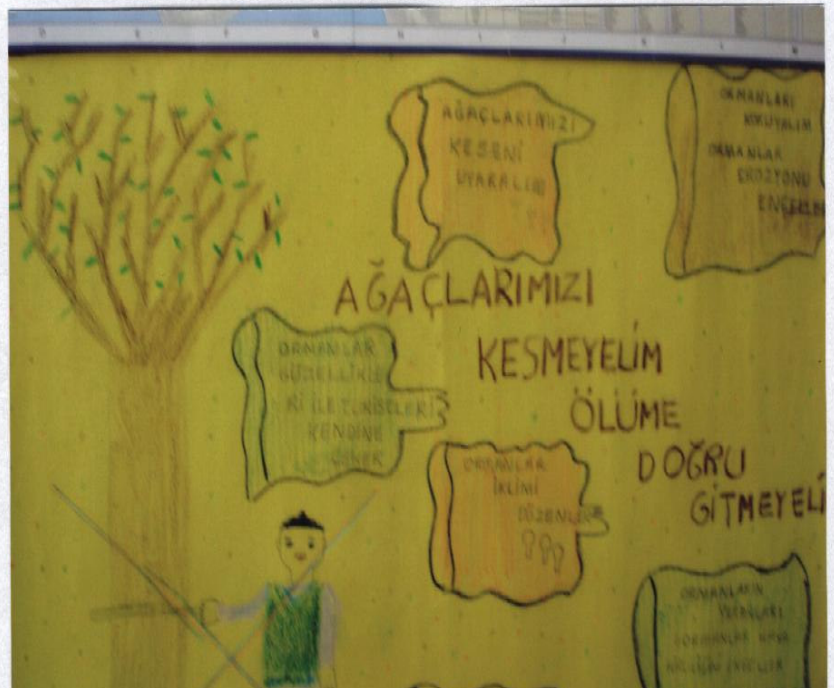 AĞAÇLARIMIZI
KESENİ
UYARALIM
ORMANLARI
KORUYALIM
ORMANLAR
EROZYONU
ENGELLER
AĞAÇLARIMIZI
KESMEYELİM
ÖLÜME
DOĞRU
GİTMEYELİ
ORMANLAR
GÜZELLİKLE
Rİ İLE TURİSTLERİ
KENDİNE
ÇEKER
ORMANLAR
İKLİMİ
DÜZENLER
ORMANLARIN
YARARLARI